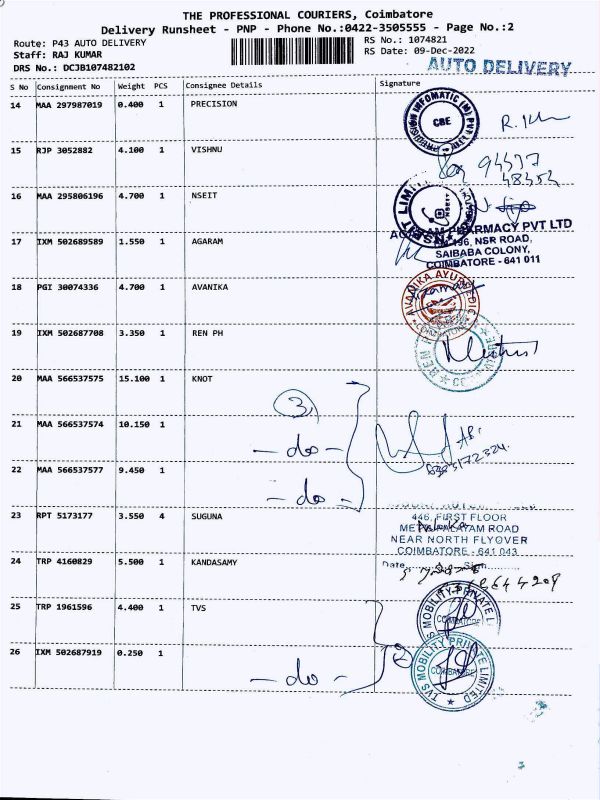 THE PROFESSIONAL COURIERS, Coimbatore
Delivery Runsheet - PNP - Phone No.:0422-3505555 - Page No.:2
Route: P43 AUTO DELIVERY
RS No.: 1074821
Staff: RAJ KUMAR
RS Date: 09-Dec-2022
DRS No.: DCJB107482102
AUTO DELIVERY
S No Consignment No Weight PCS Consignee Details Signature
14 MAA 297987019 0.400 1 PRECISION
CBE
15 RJP 3052882 4.100 1 VISHNU
16 MAA 295806196 4.700 1 NSEIT
NSEIT
17 IXM 502689589 1.550 1 AGARAM
PHARMACY PVT LTD
196, NSR ROAD,
SAIBABA COLONY,
COIMBATORE - 641 011
18 PGI 30074336 4.700 1 AVANIKA
AVANIKA AYURVEDIC
19 IXM 502687708 3.350 1 REN PH
20 MAA 566537575 15.100 1 KNOT
3
21 MAA 566537574 10.150 1
- do -
22 MAA 566537577 9.450 1
- do -
23 RPT 5173177 3.550 4 SUGUNA
446, FIRST FLOOR
METTUPALAYAM ROAD
NEAR NORTH FLYOVER
COIMBATORE - 641 043
24 TRP 4160829 5.500 1 KANDASAMY
Date
25 TRP 1961596 4.400 1 TVS
TVS MOBILITY PRIVATE LI
COIMBATORE
26 IXM 502687919 0.250 1
2
- do -
TVS MOBILITY PRIVATE LIMITED
COIMBATORE